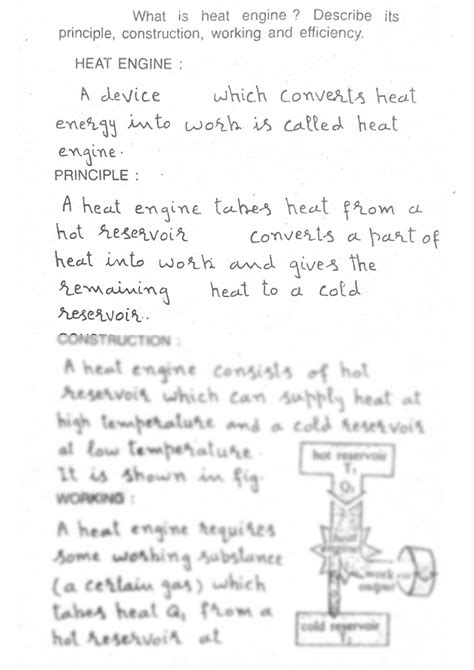 What is heat engine ? Describe its
principle, construction, working and efficiency.
HEAT ENGINE :
A device which converts heat
energy into work is called heat
engine.
PRINCIPLE :
A heat engine takes heat from a
hot reservoir converts a part of
heat into work and gives the
remaining heat to a cold
reservoir..
CONSTRUCTION :
A heat engine consists of hot
reservoir which can supply heat at
high temperature and a cold reservoir
at low temperature.
It is shown in fig.
WORKING :
A heat engine requires
some working substance
(a certain gas) which
takes heat Q₁ from a
hot reservoir at
hot reservoir
T₁
Q₁
heat
engine
work
output
cold reservoir
T₂